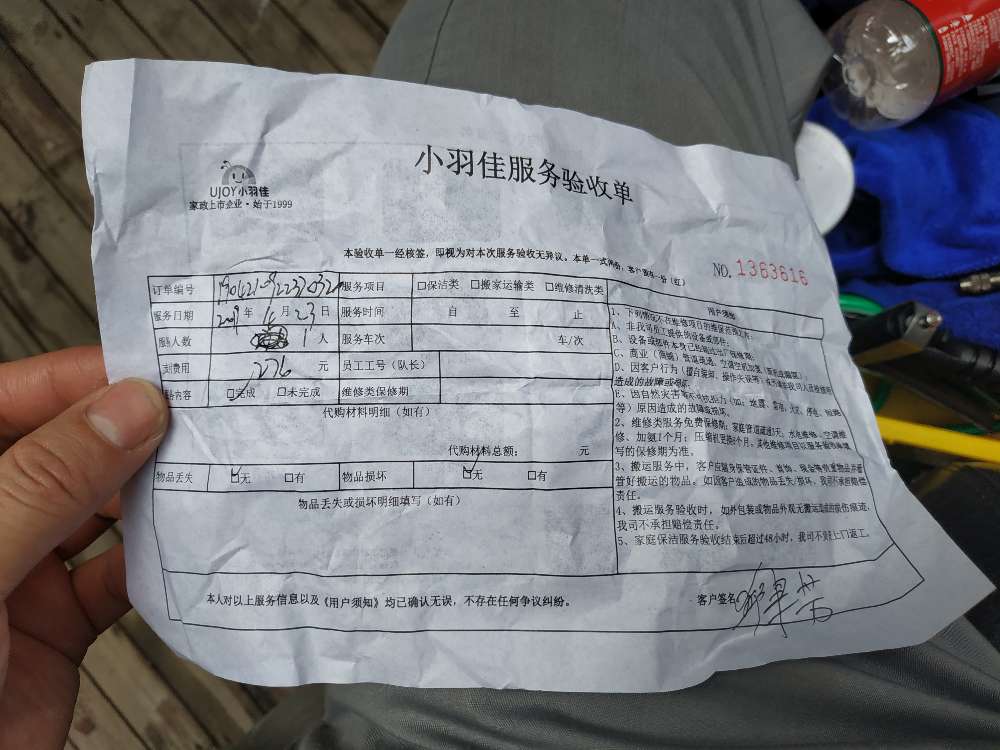 小羽佳服务验收单
UJOY小羽佳
家政上市企业·始于1999
本验收单一经核签，即视为对本次服务验收无异议。本单一式两份，客户留存一份（红）
NO. 1363616
订单编号 服务项目 □保洁类 □搬家运输类 □维修清洗类
服务日期 年 6月23日 服务时间 自 至 止
服务人数 1人 服务车次 车/次
费用 276 元 员工工号（队长）
内容 □完成 □未完成 维修类保修期
代购材料明细（如有）
代购材料总额： 元
物品丢失 □无 □有 物品损坏 □无 □有
物品丢失或损坏明细填写（如有）
用户须知
1、下列情况不在维修项目的维保范围
A、非我司员工提供的设备或部件；
B、设备或部件本身已经超过出厂保修期；
D、因客户行为
造成的故障或损坏
E、因自然灾害等不可抗拒力（如：地震、
等）原因造成的故障或损坏。
2、维修类服务免费保修期：家庭管道疏通7天，水电维修、空调维
修、加氨1个月；压缩机更换6个月。其他维修项目以服务验收单填
写的保修期为准。
3、搬运服务中，客户应随身保管证件、首饰、现金等贵重物品并看
管好搬运的物品。如因客户造成的物品丢失/损坏，我司不承担赔偿
责任。
4、搬运服务验收时，如外包装或物品外观无搬运造成的损伤痕迹，
我司不承担赔偿责任。
5、家庭保洁服务验收结束后超过48小时，我司不受理上门返工。
本人对以上服务信息以及《用户须知》均已确认无误，不存在任何争议纠纷。
客户签名